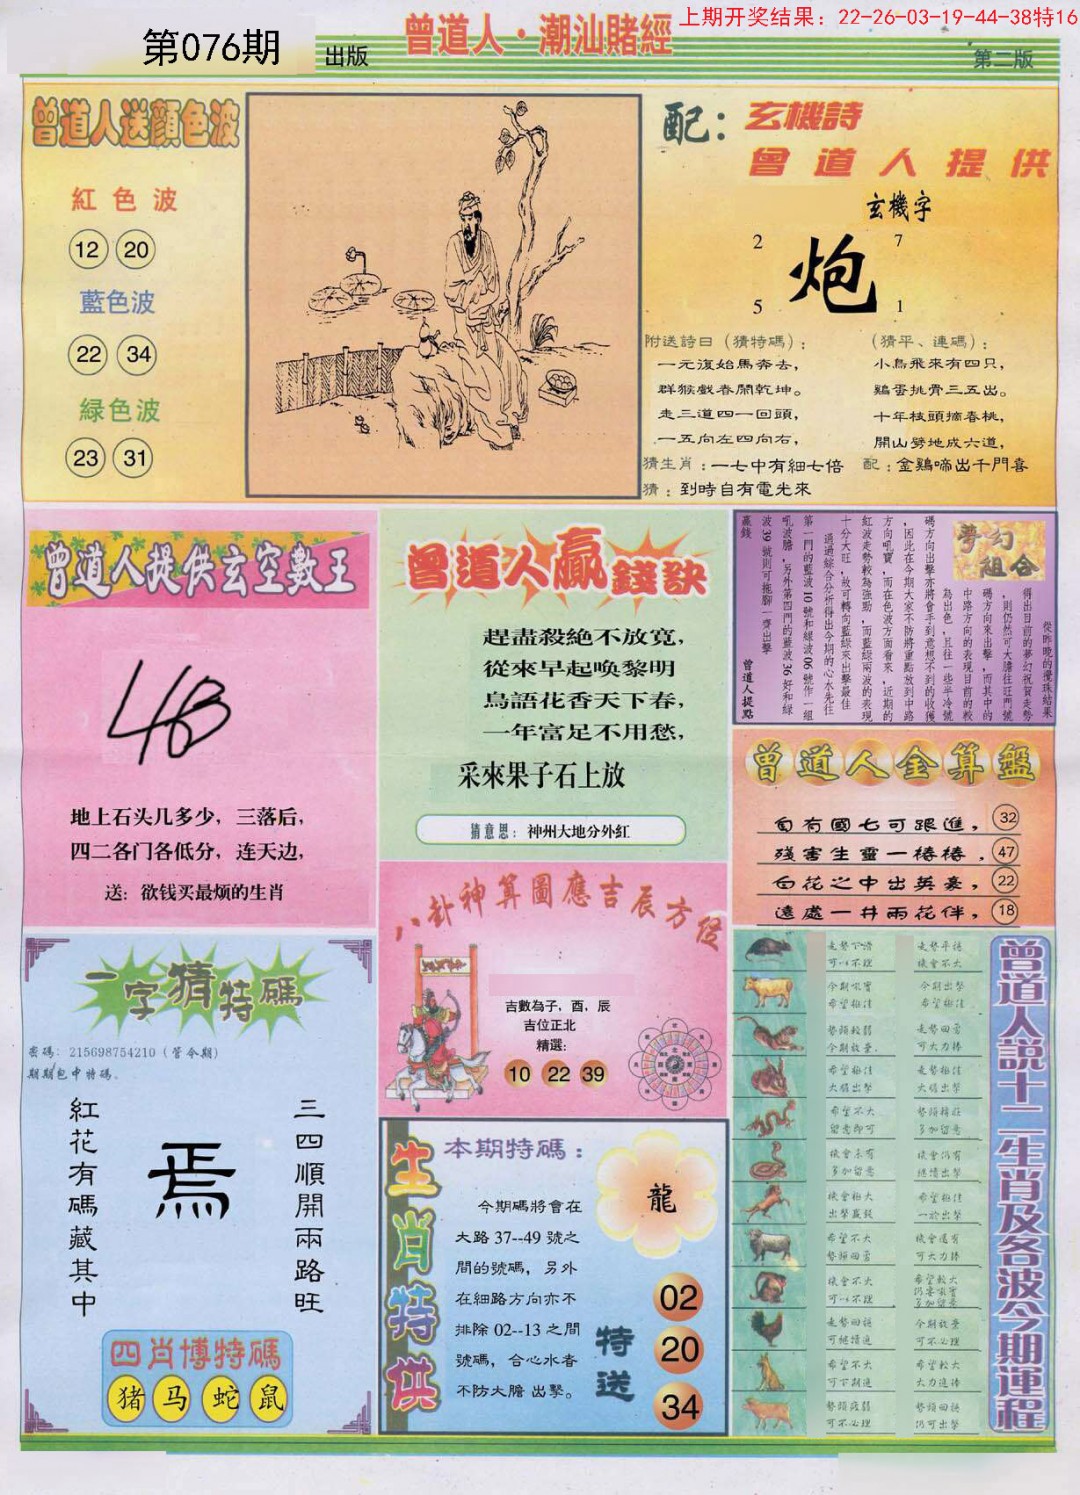 上期开奖结果：22-26-03-19-44-38特16
第076期
出版
曾道人·潮汕賭經
第二版
曾道人送顔色波
紅色波
12 20
藍色波
22 34
緑色波
23 31
配：玄機詩
曾道人提供
玄機字
2 7
炮
5 1
附送詩曰（猜特碼）；
一元復始馬奔去，
群猴戲春鬧乾坤。
走三道四一回頭，
一五向左四向右，
猜生肖：一七中有細七倍
猜：到時自有電光來
（猜平、連碼）；
小鳥飛來有四只，
鷄蛋挑骨三五出。
十年枝頭摘春桃，
開山劈地成六道，
配：金鷄啼出千門喜
曾道人提供玄空數王
48
地上石头几多少，三落后，
四二各门各低分，连天边，
送：欲钱买最烦的生肖
曾道人贏錢訣
趕盡殺絶不放寬，
從來早起喚黎明
鳥語花香天下春，
一年富足不用愁，
采來果子石上放
猜意思：神州大地分外紅
夢幻組合
從昨晚的攪珠結果
得出目前的夢幻祝賀走勢
，則仍然可大膽往旺門號
碼方向來出擊，而其中的
中路方向的表現目前的較
為出色，且往一些半冷號
碼方向出擊亦將會手到意想不到的收獲
，因此在今期大家不防將重點放到中路
方向吼寶，而在色波方面看來，近期的
紅波走勢較為強勁，而藍緑兩波的表現
十分大旺，故可轉向藍緑來出擊最佳
通過綜合分析得出今期的心水先往
第一門的藍波10號和緑波06號作一組
吼波膽，另外第四門的藍波36好和緑
波39號則可拖脚一齊出擊
贏錢
曾道人提點
曾道人金算盤
旬有國七可跟進， 32
殘害生靈一樁樁， 47
白花之中出英豪， 22
遠處一井兩花伴， 18
八卦神算圖應吉辰方位
吉數為子，酉，辰
吉位正北
精選：
10 22 39
一字猜特碼
密碼：215698754210（管令期）
期期包中特碼。
三四順開兩路旺
焉
紅花有碼藏其中
四肖博特碼
猪 马 蛇 鼠
生肖特供
本期特碼：
今期碼將會在
大路37--49號之
間的號碼，另外
在細路方向亦不
排除02--13之間
號碼，合心水者
不防大膽出擊。
龍
特送
02
20
34
曾道人說十二生肖及各波今期運程